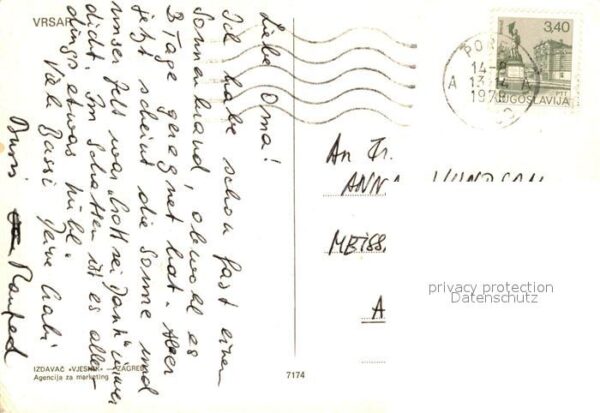 VRSAR
Liebe Oma!
Ich habe schon fast einen
Sonnenbrand, obwohl es
3 Tage geregnet hat. Aber
jetzt scheint die Sonne und
unser Zelt war „Gott sei Dank" immer
dicht. Im Schatten ist es aller-
dings etwas kühl.
Viele Bussi Deine Gabi
Manfred
IZDAVAČ «VJESNIK» — ZAGREB
Agencija za marketing
7174
3,40
JUGOSLAVIJA
14-8
A 13 A
An Fr.
ANNA
MEISS
A
privacy protection
Datenschutz